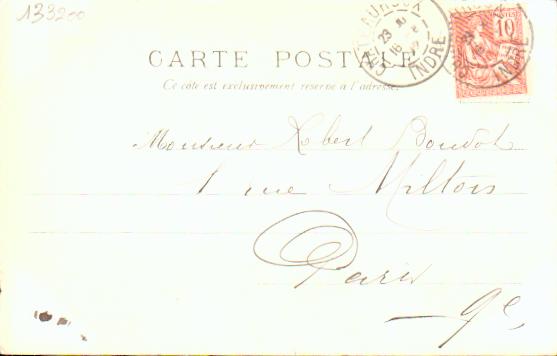 133200
CHATEAUROUX
23
16
INDRE
POSTES
10
CARTE POSTALE
Ce côté est exclusivement réservé à l'adresse.
Monsieur Robert Boudot
1 rue Milton
Paris
9e